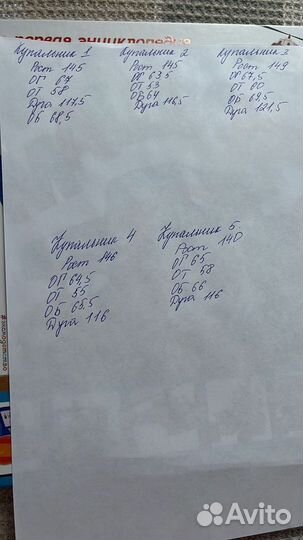 первая энциклопедия
Купальник 1
Рост 145
ОГ 69
ОТ 58
Дуга 117,5
ОБ 68,5
Купальник 2
Рост 145
ОГ 63,5
ОТ 53
ОБ 64
Дуга 116,5
Купальник 3
Рост 149
ОГ 67,5
ОТ 60
ОБ 69,5
Дуга 121,5
Купальник 4
Рост 146
ОГ 64,5
ОТ 55
ОБ 65,5
Дуга 116
Купальник 5
Рост 140
ОГ 65
ОТ 58
ОБ 66
Дуга 116
Avito